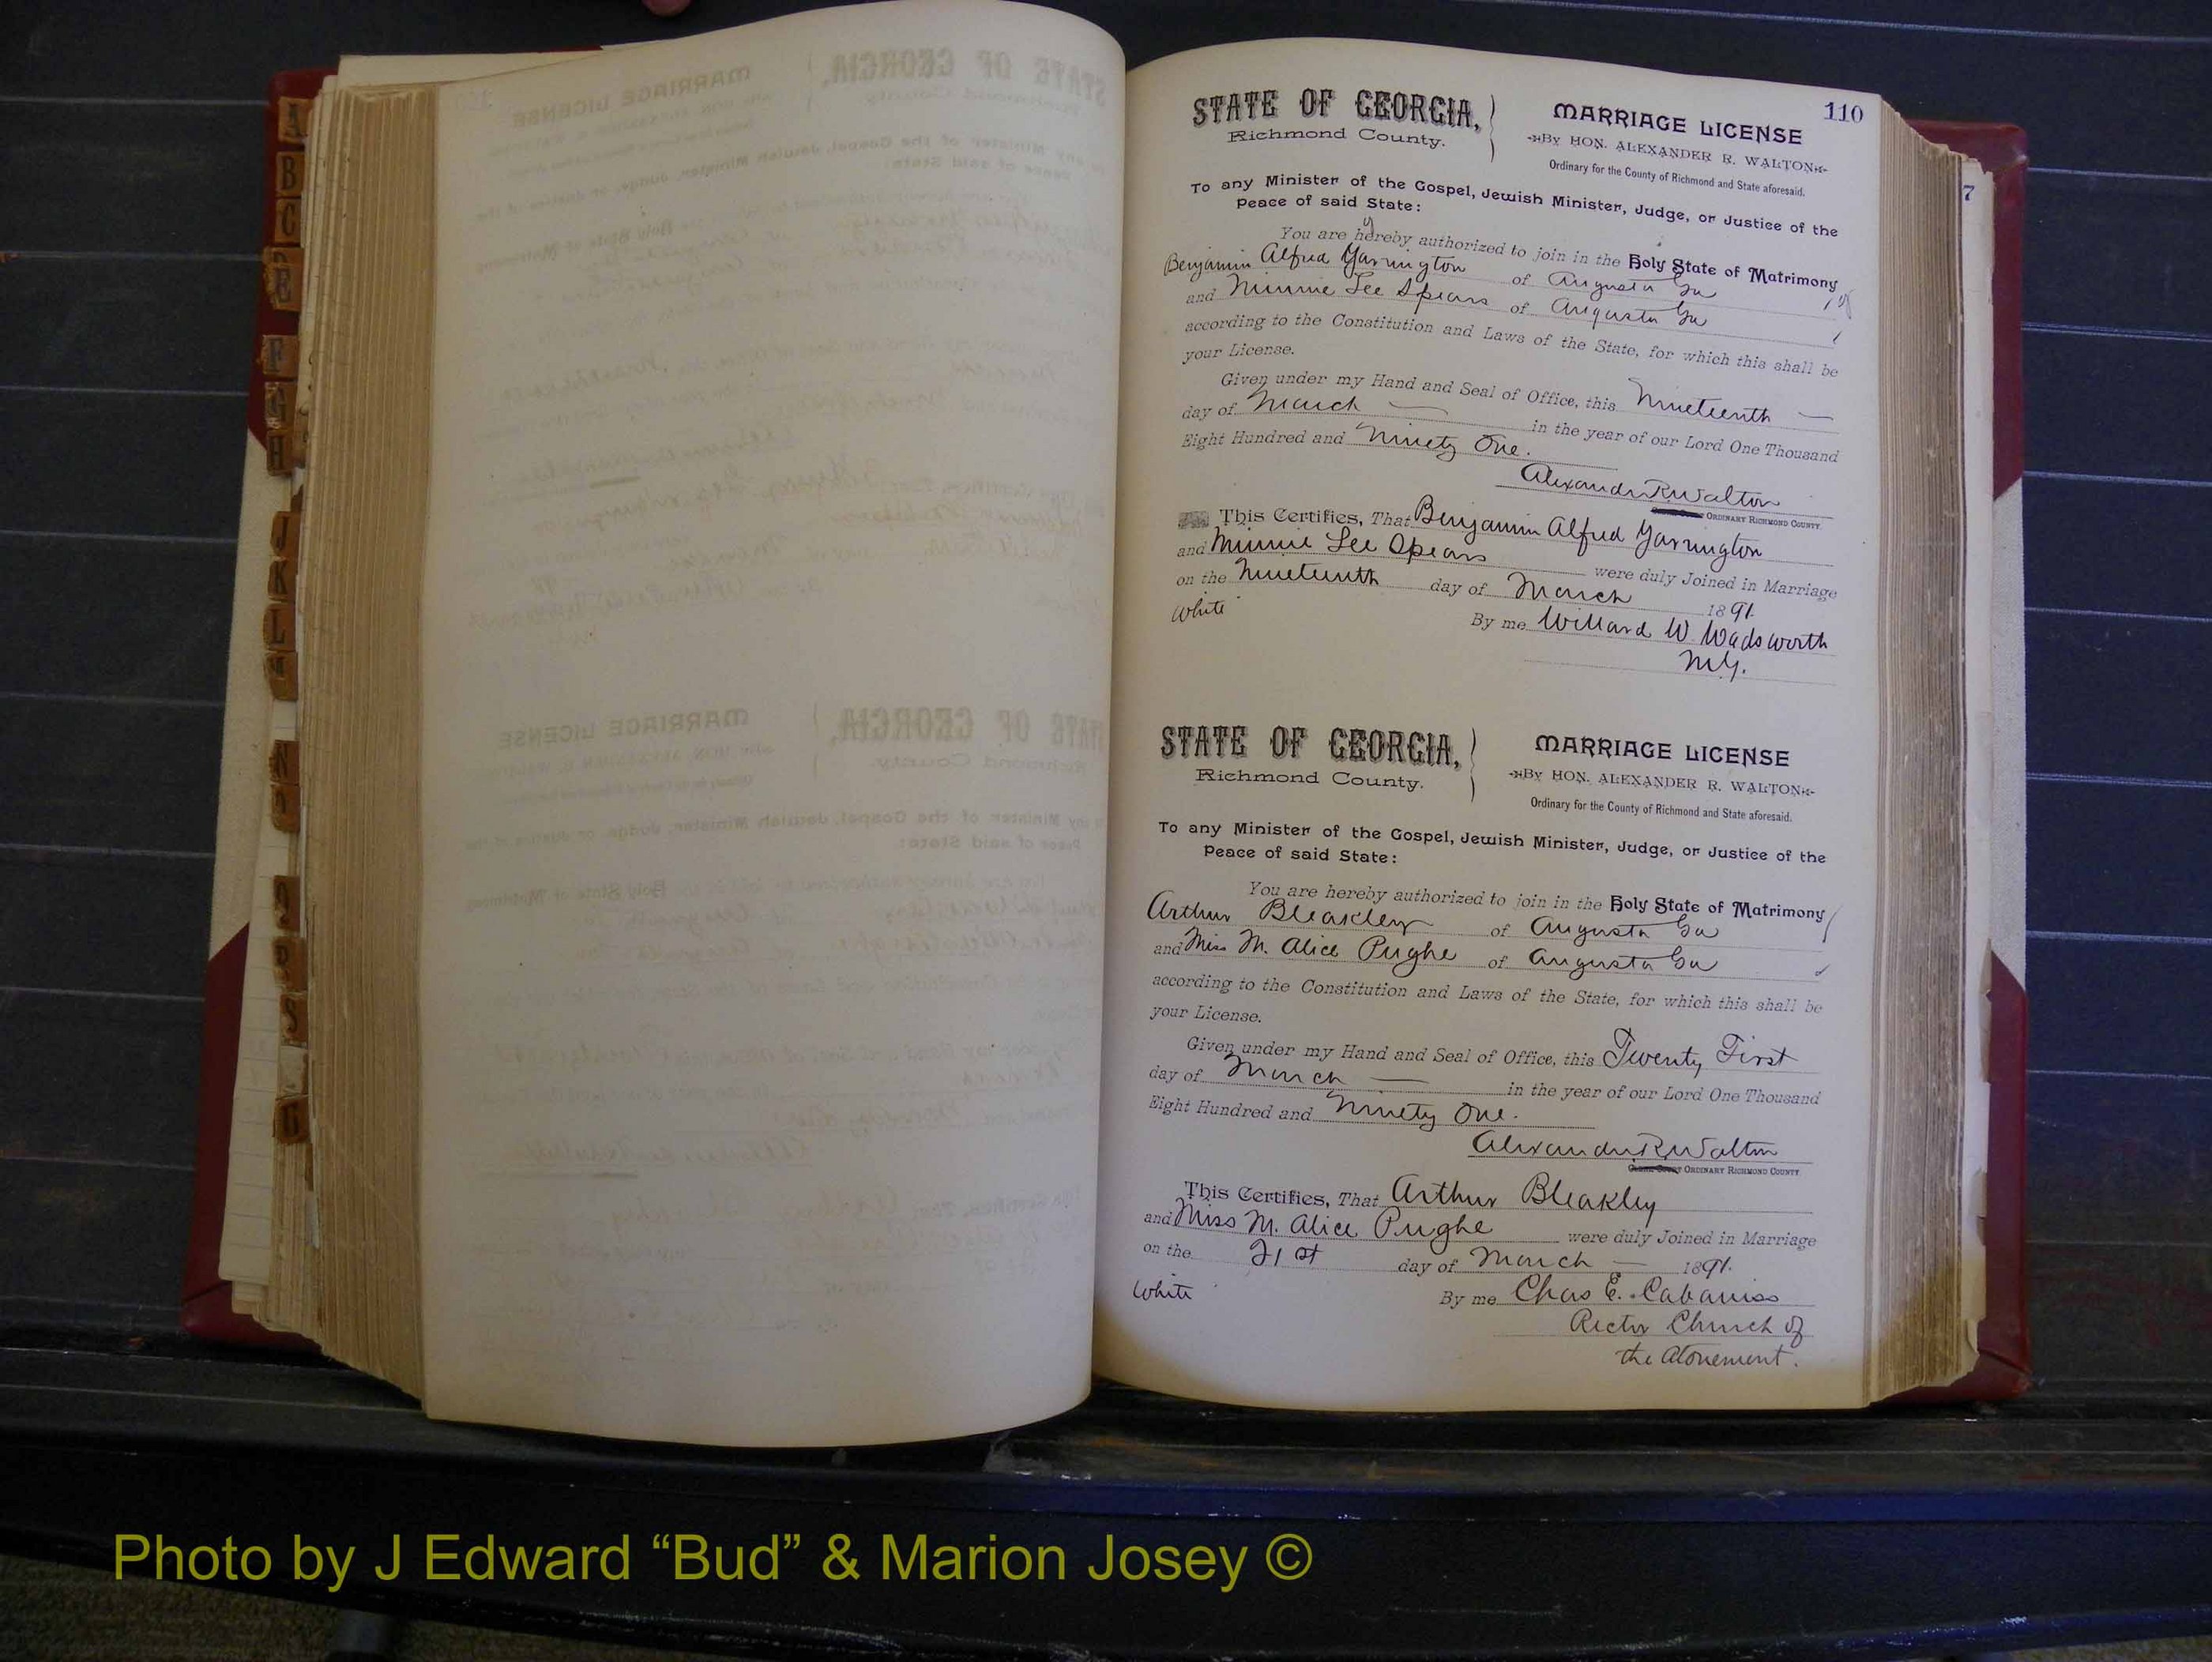 A
B
C
E
F
G
H
J
K
L
M
N
O
P
R
S
110
7
STATE OF GEORGIA,
Richmond County.
MARRIAGE LICENSE
By HON. ALEXANDER R. WALTON
Ordinary for the County of Richmond and State aforesaid.
To any Minister of the Gospel, Jewish Minister, Judge, or Justice of the
Peace of said State:
You are hereby authorized to join in the Holy State of Matrimony
Benjamin Alfred Yarrington of Augusta Ga
and Minnie Lee Spears of Augusta Ga
according to the Constitution and Laws of the State, for which this shall be
your License.
Given under my Hand and Seal of Office, this Nineteenth
day of March in the year of our Lord One Thousand
Eight Hundred and Ninety One.
Alexander R Walton
ORDINARY RICHMOND COUNTY.
This Certifies, That Benjamin Alfred Yarrington
and Minnie Lee Spears were duly Joined in Marriage
on the Nineteenth day of March 1891.
White
By me Willard W. Wadsworth
M.G.
STATE OF GEORGIA,
Richmond County.
MARRIAGE LICENSE
By HON. ALEXANDER R. WALTON
Ordinary for the County of Richmond and State aforesaid.
To any Minister of the Gospel, Jewish Minister, Judge, or Justice of the
Peace of said State:
You are hereby authorized to join in the Holy State of Matrimony
Arthur Bleakley of Augusta Ga
and Miss M. Alice Pughe of Augusta Ga
according to the Constitution and Laws of the State, for which this shall be
your License.
Given under my Hand and Seal of Office, this Twenty First
day of March in the year of our Lord One Thousand
Eight Hundred and Ninety One.
Alexander R Walton
ORDINARY RICHMOND COUNTY.
This Certifies, That Arthur Bleakley
and Miss M. Alice Pughe were duly Joined in Marriage
on the 21st day of March 1891.
White
By me Chas E. Cabaniss
Rector Church of
the Atonement.
Photo by J Edward “Bud” & Marion Josey ©